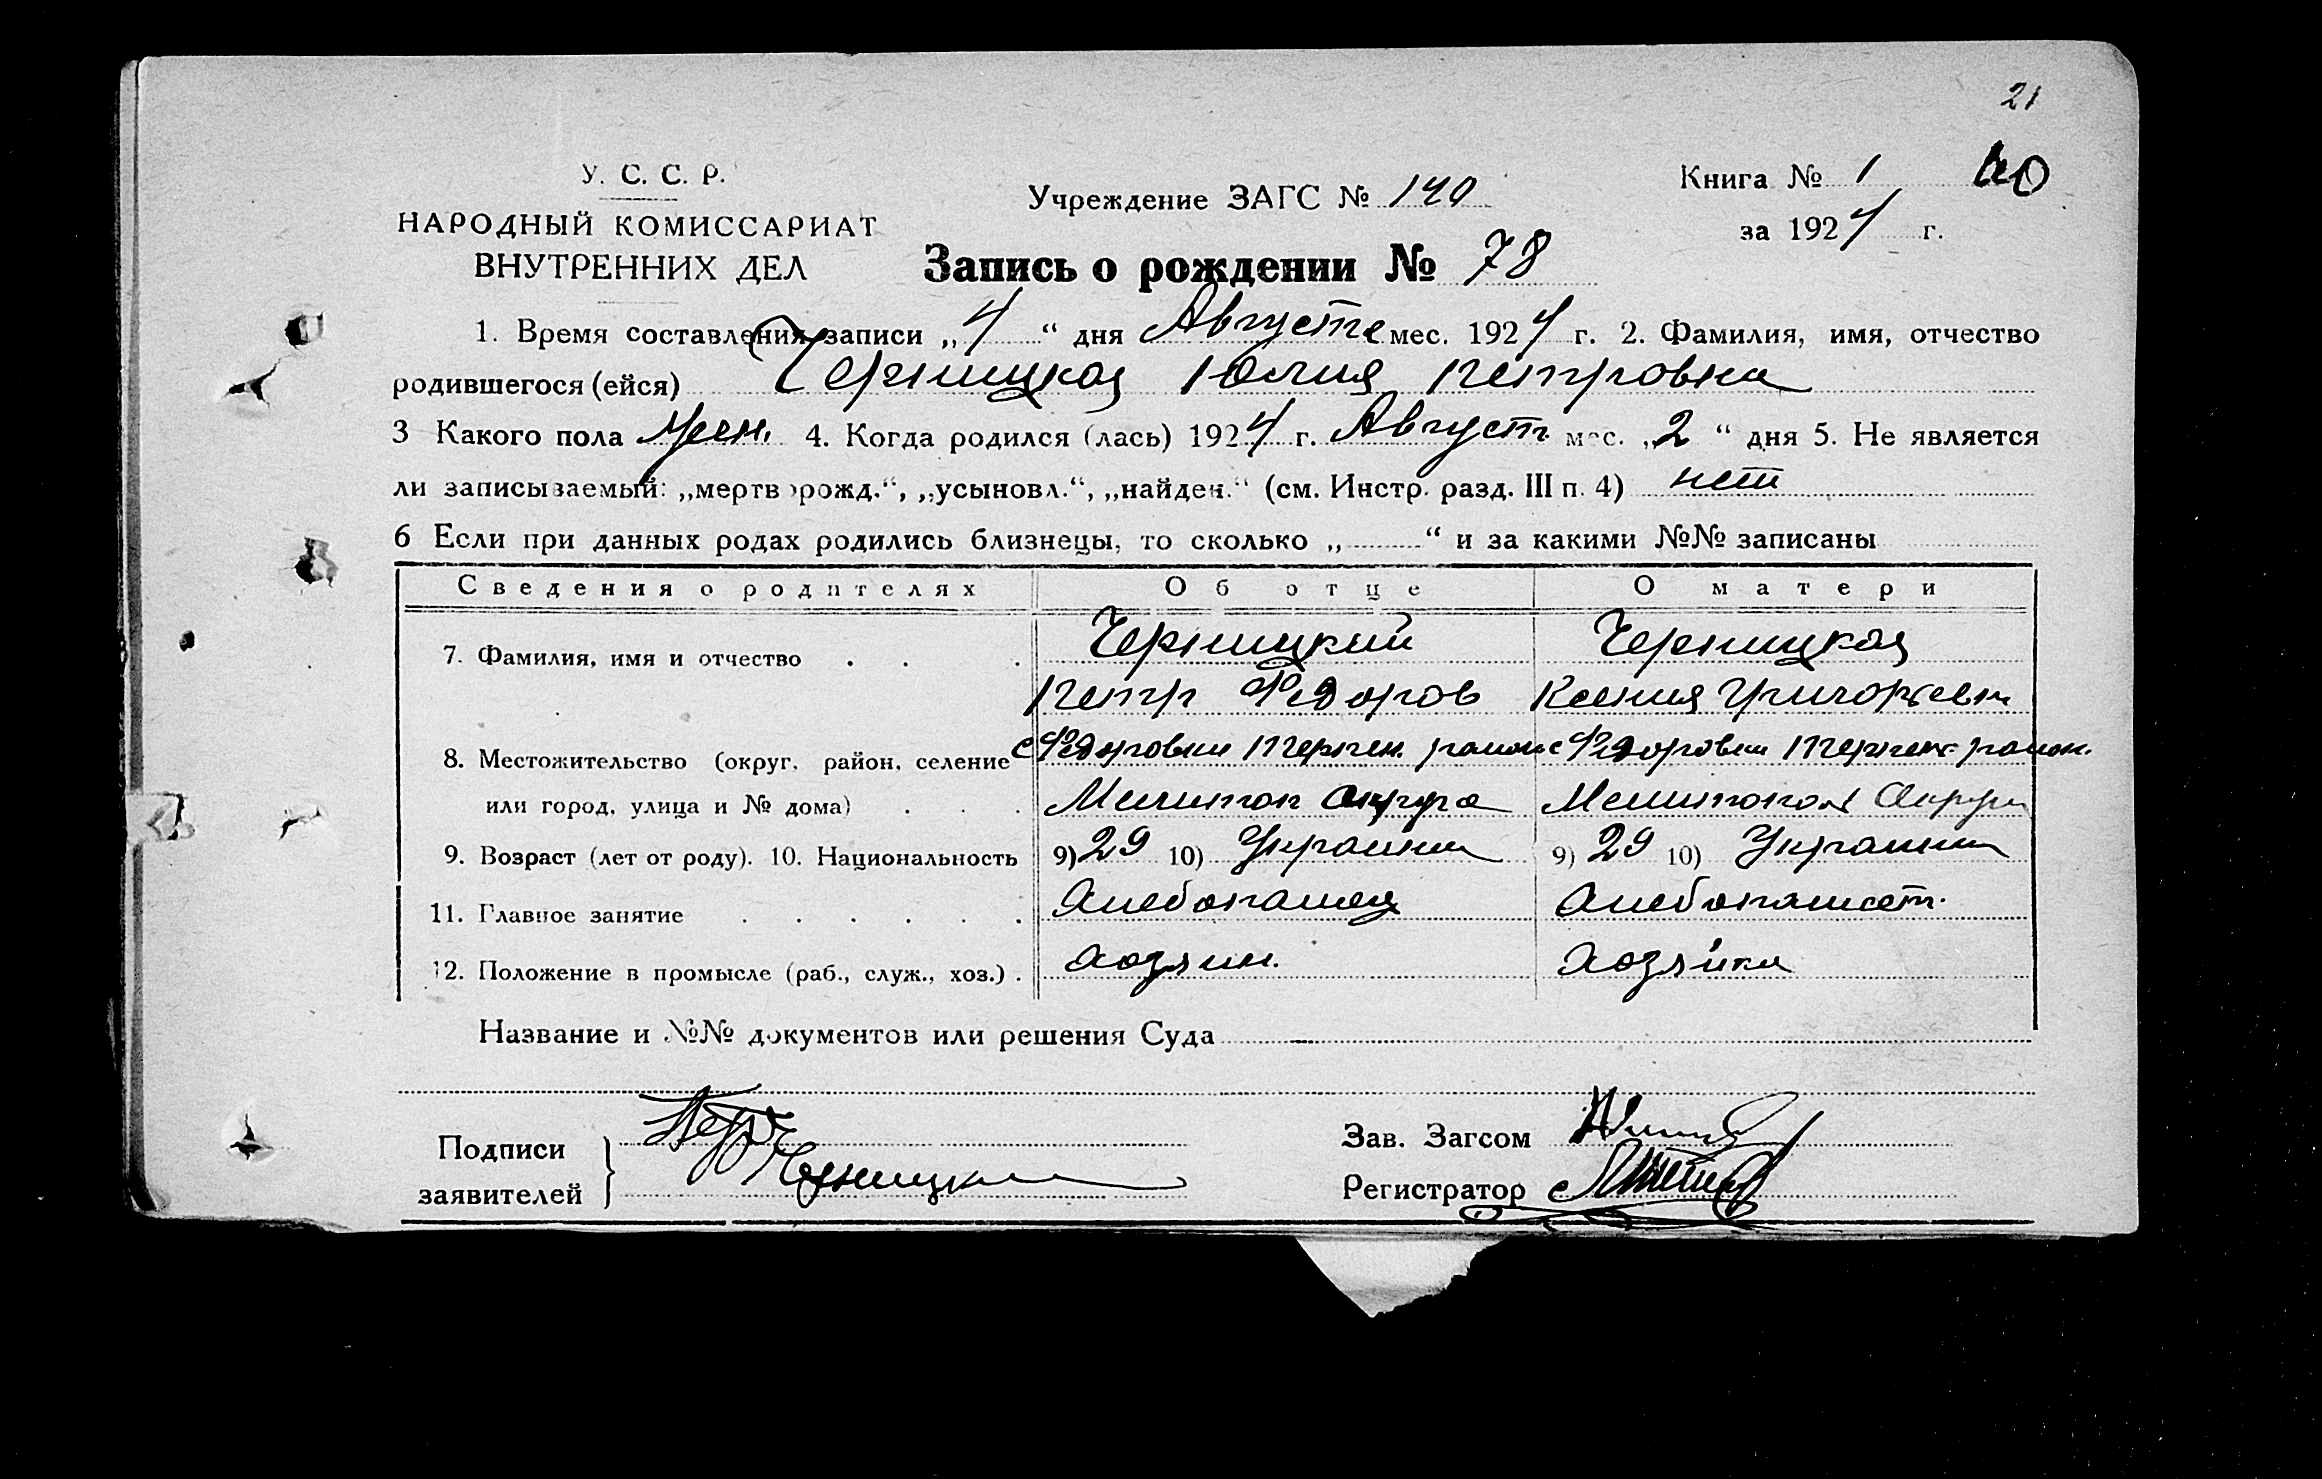 21
У. С. С. Р.
Книга № 1 40
Учреждение ЗАГС № 140
НАРОДНЫЙ КОМИССАРИАТ
за 1924 г.
ВНУТРЕННИХ ДЕЛ
Запись о рождении № 78
1. Время составления записи „4“ дня Августа мес. 1924 г. 2. Фамилия, имя, отчество
родившегося (ейся) Черницкая Юлия Петровна
3 Какого пола жен. 4. Когда родился (лась) 1924 г. Август мес. „2“ дня 5. Не является
ли записываемый: „мертворожд.“, „усыновл.“, „найден.“ (см. Инстр. разд. III п. 4) нет
6 Если при данных родах родились близнецы, то сколько „ “ и за какими №№ записаны
Сведения о родителях Об отце О матери
Черницкий Черницкая
7. Фамилия, имя и отчество
Петр Федоров Ксения Григорьевн
8. Местожительство (округ, район, селение с Федоровки район с Федоровки район.
или город, улица и № дома) Мелитоп округа Мелитопол Округ
9. Возраст (лет от роду). 10. Национальность 9) 29 10) Украин 9) 29 10) Украин
11. Главное занятие Хлебопашец Хлебопашест.
12. Положение в промысле (раб., служ., хоз.) хозяин. хозяйка
Название и №№ документов или решения Суда
Подписи Петр Зав. Загсом
заявителей Черницкий Регистратор